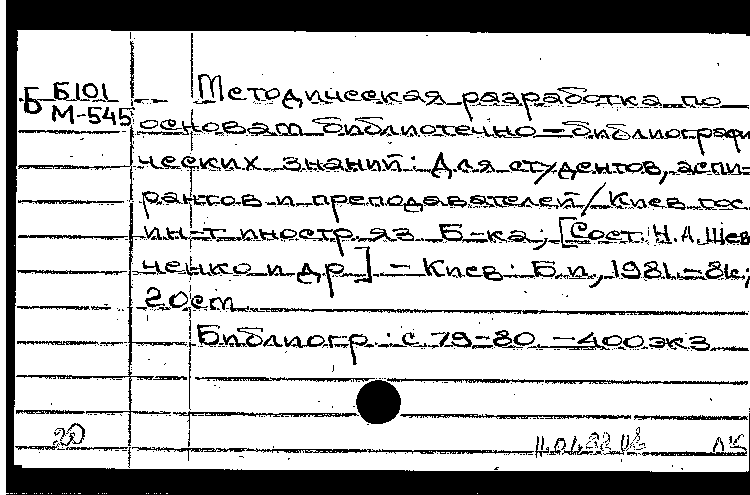 Б Б101
М-545
Методическая разработка по
основам библиотечно-библиографи
ческих знаний: Для студентов, аспи-
рантов и преподавателей/Киев гос.
ин-т иностр яз Б-ка; [Сост. Н.А.Шев
ченко и др] - Киев: Б.и, 1981.-81с;
20см
Библиогр.: с 79-80. -400экз
20